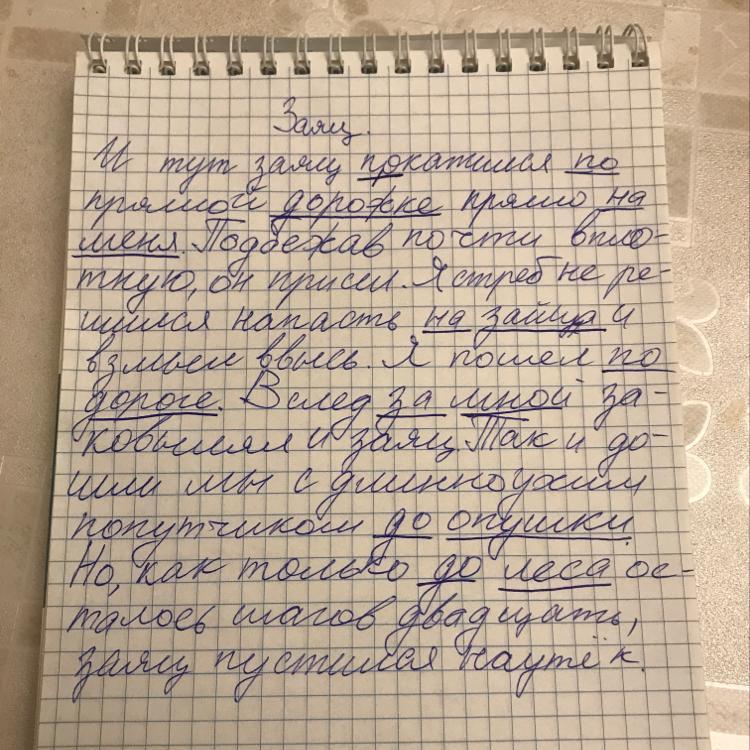 Заяц.
И тут заяц покатился по
прямой дорожке прямо на
меня. Подбежав почти впло-
тную, он присел. Ястреб не ре-
шился напасть на зайца и
взмыл ввысь. Я пошел по
дороге. Вслед за мной за-
ковылял и заяц. Так и до-
шли мы с длинноухим
попутчиком до опушки.
Но, как только до леса ос-
талось шагов двадцать,
заяц пустился наутёк.